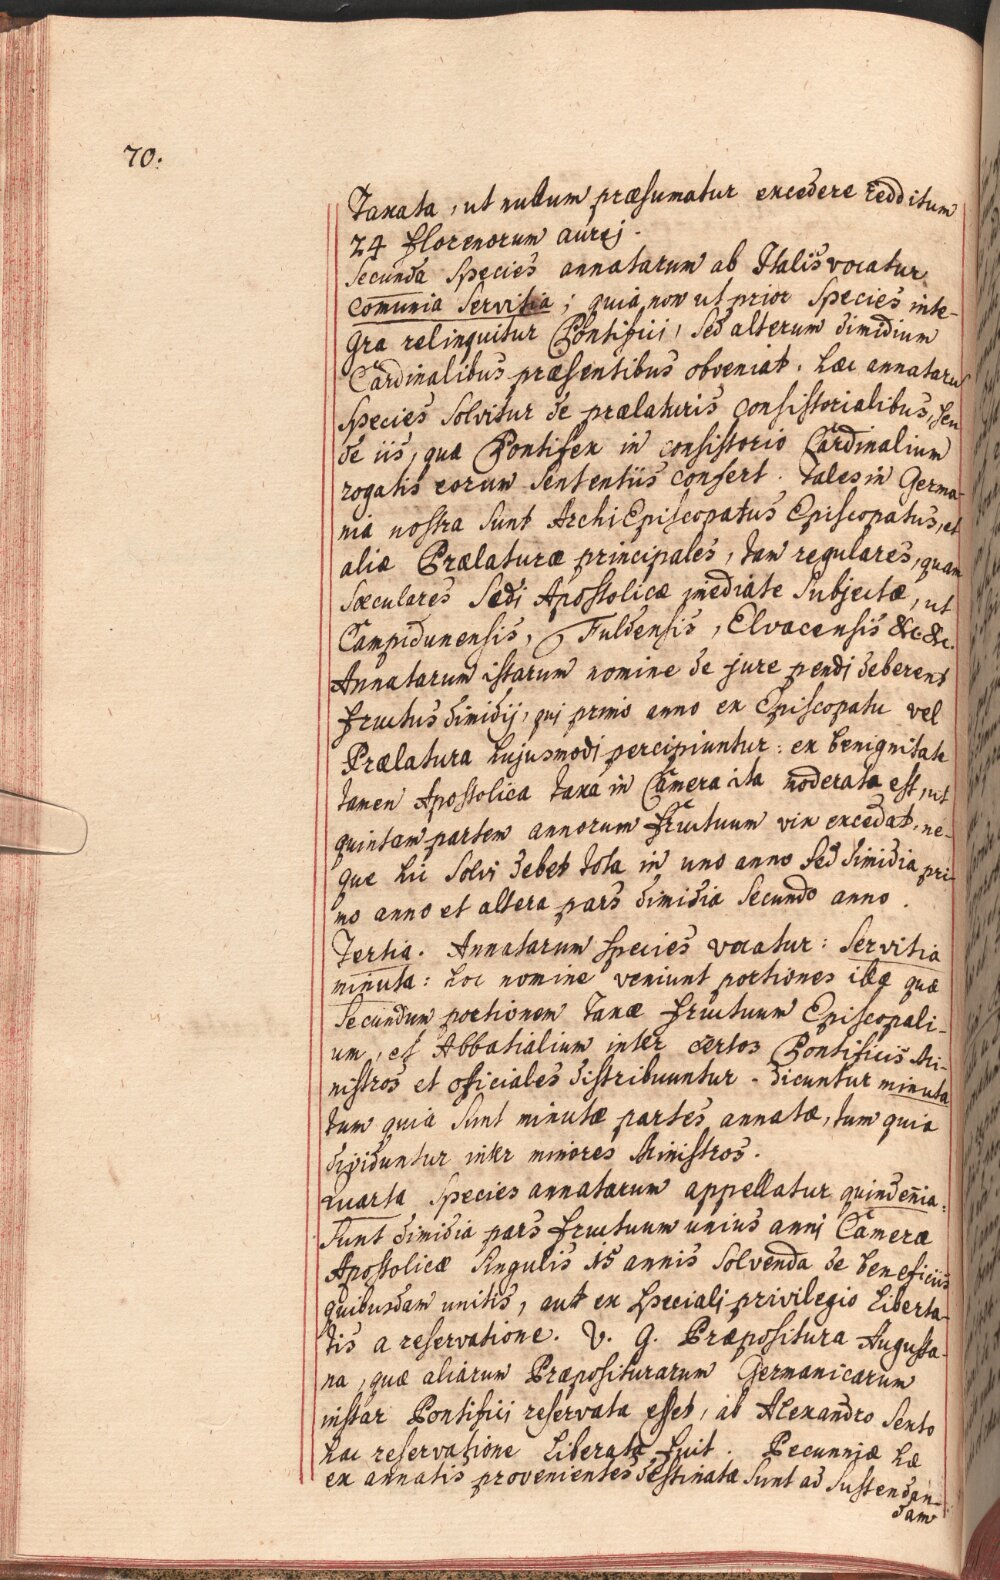 70.
Taxata, ut nullum præsumatur excedere redditum
24 florenorum aurej.
Secunda Species annatarum ab Italis vocatur
Comunia Servitia; quia non ut prior Species inte-
gra relinquitur Pontifici, Sed alterum dimidium
Cardinalibus præsentibus obveniat. hæc annatarum
Species Solvitur de prælaturis Consistorialibus, seu
de iis, quæ Pontifex in consistorio Cardinalium
rogatis eorum Sententiis confert. Tales in Germa-
nia nostra Sunt ArchiEpiscopatus Episcopatus, et
aliæ Prælaturæ principales, tam regulares, quam
Sæculares Sedi Apostolicæ imediate Subjectæ, ut
Campidunensis, Fuldensis, Elvacensis &c. &c.
Annatarum istarum nomine de jure pendi deberent
fructus dimidij, qui primo anno ex Episcopatu vel
Prælatura hujusmodi percipiuntur: ex benignitate
tamen Apostolica taxa in Camera ita moderata est, ut
quintam partem annorum fructuum vix excedat, ne-
que hic Solvi debet tota in uno anno Sed dimidia pri-
mo anno et altera pars dimidia Secundo anno.
Tertia. Annatarum Species vocatur: Servitia
minuta: hoc nomine veniunt portiones illæ quæ
Secundum portionem Taxæ fructuum Episcopali-
um, et Abbatialium inter certos Pontificis Mi-
nistros et officiales distribuuntur. dicuntur minuta
tum quia Sunt minutæ partes annatæ, tum quia
dividuntur inter minores Ministros.
Quarta Species annatarum appellatur quindenia:
Sunt dimidia pars fructuum unius anni Cameræ
Apostolicæ Singulis 15 annis Solvenda de beneficiis
quibusdam unitis, aut ex Speciali privilegio liberta-
tis a reservatione. V. G. Præpositura Augusta-
na, quæ aliarum Præpositurarum Germanicarum
instar Pontifici reservata esset, ab Alexandro Sexto
hac reservatione liberata fuit. Pecunniæ hæ
ex annatis provenientes destinatæ Sunt ad Sustendan-
dam